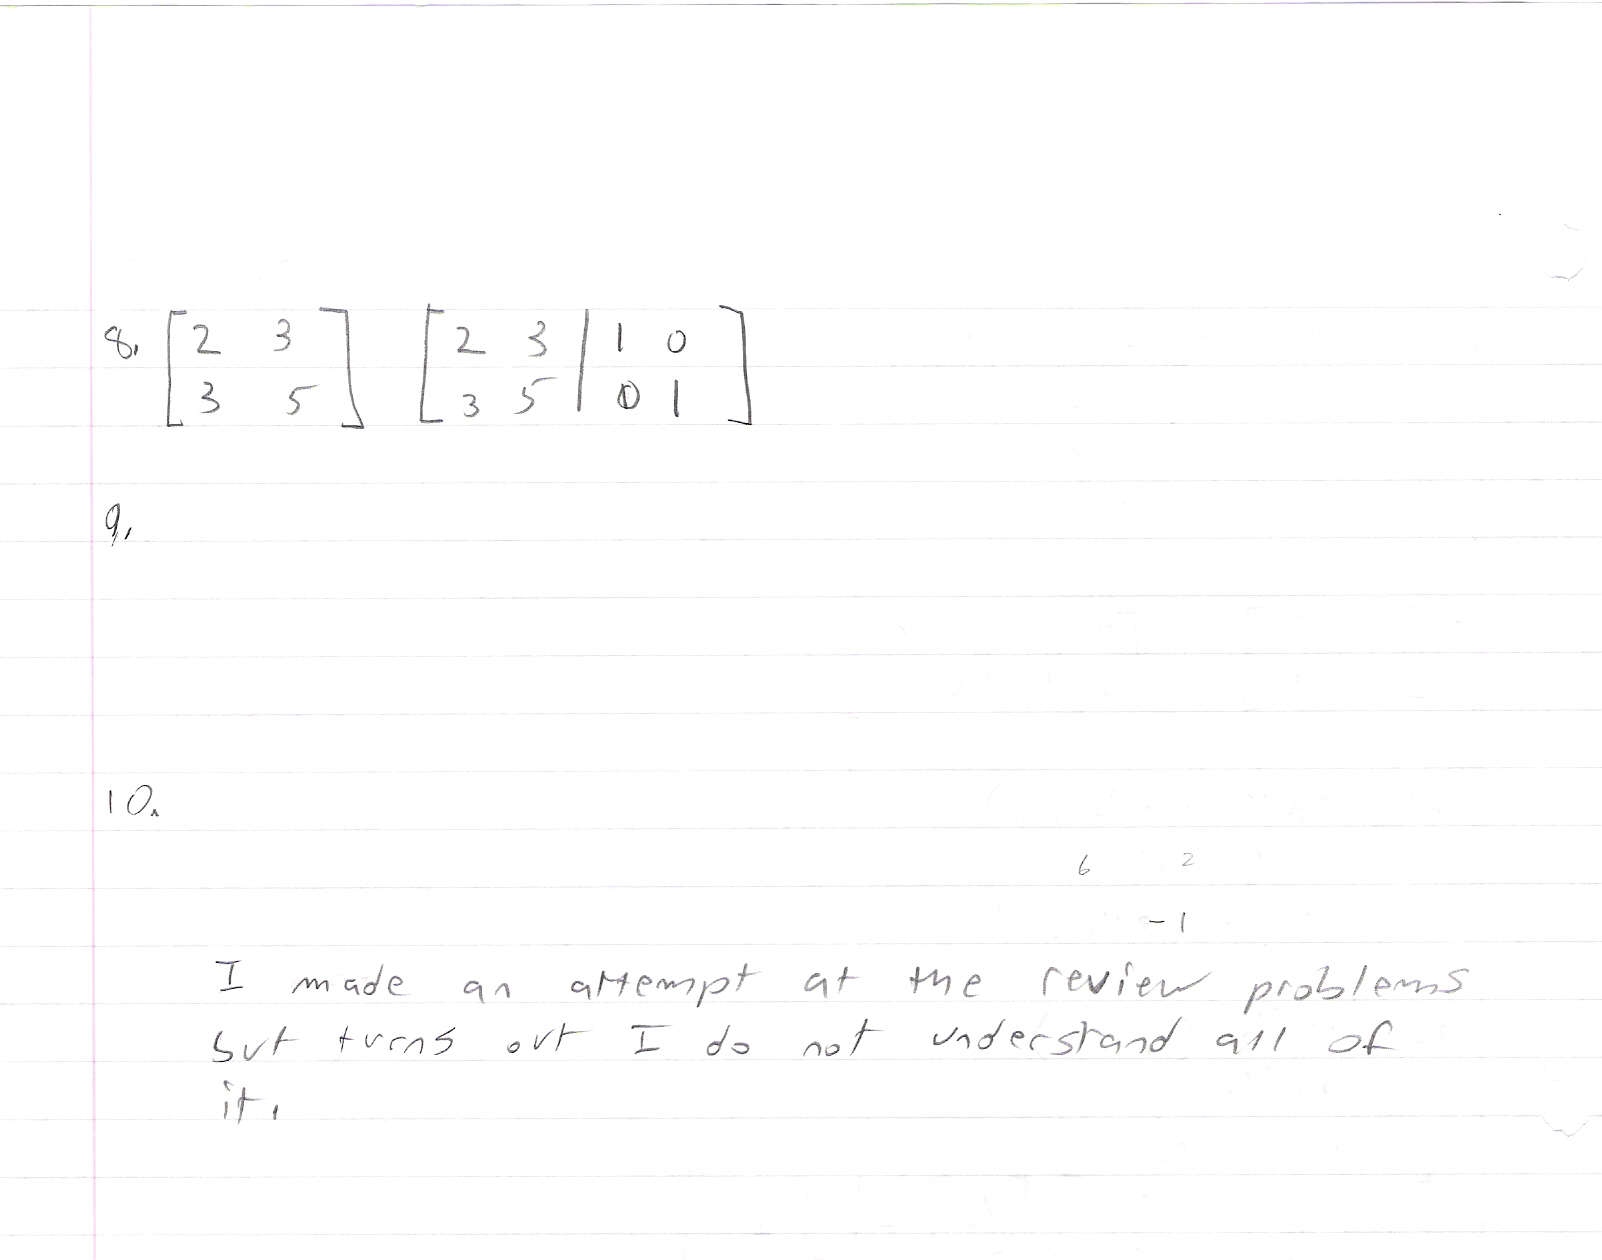 8. [2 3 [2 3 | 1 0
3 5] 3 5 | 0 1]
9.
10.
6 2
-1
I made an attempt at the review problems
but turns out I do not understand all of
it.